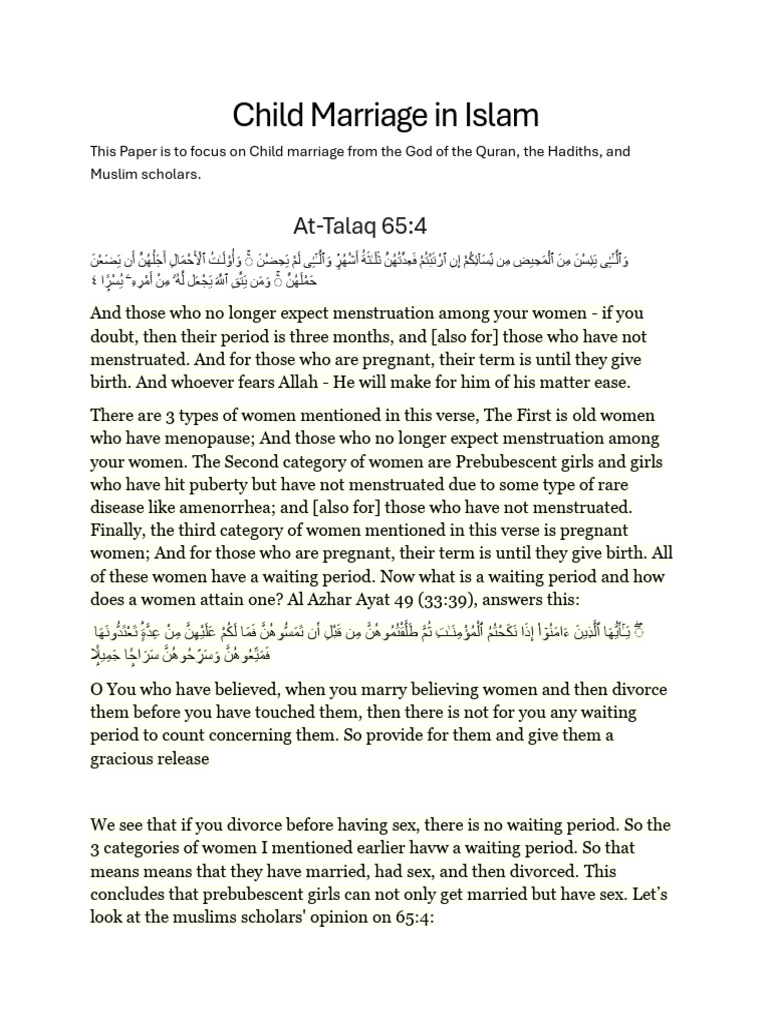 Child Marriage in Islam
This Paper is to focus on Child marriage from the God of the Quran, the Hadiths, and
Muslim scholars.
At-Talaq 65:4
وَٱلَّـٰٓـِٔى يَئِسْنَ مِنَ ٱلْمَحِيضِ مِن نِّسَآئِكُمْ إِنِ ٱرْتَبْتُمْ فَعِدَّتُهُنَّ ثَلَـٰثَةُ أَشْهُرٍۢ وَٱلَّـٰٓـِٔى لَمْ يَحِضْنَ ۚ وَأُو۟لَـٰتُ ٱلْأَحْمَالِ أَجَلُهُنَّ أَن يَضَعْنَ
حَمْلَهُنَّ ۚ وَمَن يَتَّقِ ٱللَّهَ يَجْعَل لَّهُۥ مِنْ أَمْرِهِۦ يُسْرًۭا ٤
And those who no longer expect menstruation among your women - if you
doubt, then their period is three months, and [also for] those who have not
menstruated. And for those who are pregnant, their term is until they give
birth. And whoever fears Allah - He will make for him of his matter ease.
There are 3 types of women mentioned in this verse, The First is old women
who have menopause; And those who no longer expect menstruation among
your women. The Second category of women are Prebubescent girls and girls
who have hit puberty but have not menstruated due to some type of rare
disease like amenorrhea; and [also for] those who have not menstruated.
Finally, the third category of women mentioned in this verse is pregnant
women; And for those who are pregnant, their term is until they give birth. All
of these women have a waiting period. Now what is a waiting period and how
does a women attain one? Al Azhar Ayat 49 (33:39), answers this:
يَـٰٓأَيُّهَا ٱلَّذِينَ ءَامَنُوٓا۟ إِذَا نَكَحْتُمُ ٱلْمُؤْمِنَـٰتِ ثُمَّ طَلَّقْتُمُوهُنَّ مِن قَبْلِ أَن تَمَسُّوهُنَّ فَمَا لَكُمْ عَلَيْهِنَّ مِنْ عِدَّةٍۢ تَعْتَدُّونَهَا ۖ
فَمَتِّعُوهُنَّ وَسَرِّحُوهُنَّ سَرَاحًۭا جَمِيلًۭا
O You who have believed, when you marry believing women and then divorce
them before you have touched them, then there is not for you any waiting
period to count concerning them. So provide for them and give them a
gracious release
We see that if you divorce before having sex, there is no waiting period. So the
3 categories of women I mentioned earlier havw a waiting period. So that
means means that they have married, had sex, and then divorced. This
concludes that prebubescent girls can not only get married but have sex. Let's
look at the muslims scholars' opinion on 65:4: